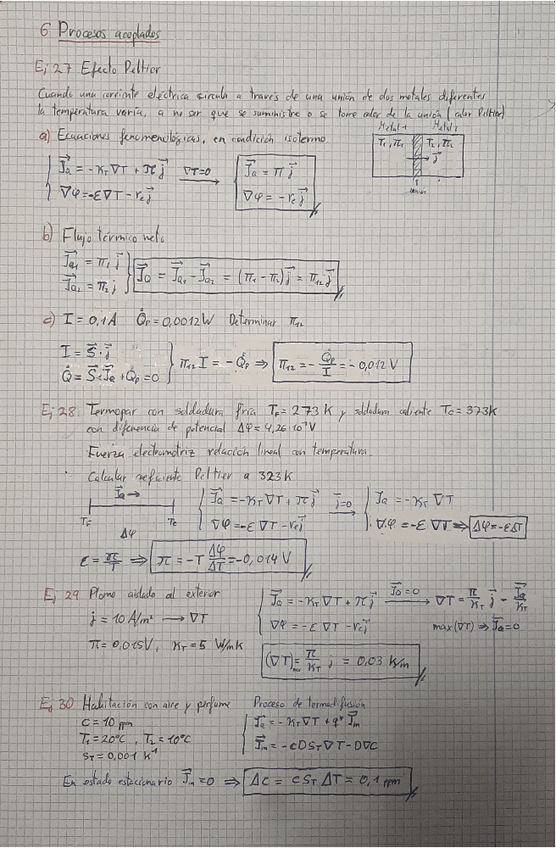 6 Procesos acoplados
Ej 27 Efecto Peltier
Cuando una corriente eléctrica circula a través de una unión de dos metales diferentes
la temperatura varía, a no ser que se suministre o se tome calor de la unión (calor Peltier)
a) Ecuaciones fenomenológicas, en condición isotermo
Metal 1 Metal 2
T₁, π₁ T₂, π₂
j⃗
unión
J⃗_Q = -κ_T ∇T + π j⃗
∇T=0 →
J⃗_Q = π j⃗
∇φ = -ε∇T - r_c j⃗
∇φ = -r_c j⃗
b) Flujo térmico neto
J⃗_Q₁ = π₁ j⃗
J⃗_Q₂ = π₂ j⃗
J⃗_Q = J⃗_Q₁ - J⃗_Q₂ = (π₁ - π₂) j⃗ = π₁₂ j⃗
c) I = 0,1 A Q̇_p = 0,0012 W Determinar π₁₂
I = S⃗ · j⃗
Q̇ = S⃗ · J⃗_Q + Q̇_p = 0
π₁₂ I = -Q̇_p ⇒ π₁₂ = -Q̇_p/I = -0,012 V
Ej 28 Termopar con soldadura fría T_F = 273 K y soldadura caliente T_C = 373K
con diferencia de potencial Δφ = 4,26·10⁻³ V
Fuerza electromotriz relación lineal con temperatura.
Calcular coeficiente Peltier a 323 K
J⃗_Q →
T_F T_C
Δφ
J⃗_Q = -κ_T ∇T + π j⃗
j=0 →
J_Q = -κ_T ∇T
∇φ = -ε ∇T - r_c j⃗
∇φ = -ε ∇T ⇒ Δφ = -εΔT
ε = π/T ⇒ π = -T Δφ/ΔT = -0,014 V
Ej 29 Plomo aislado al exterior
j = 10 A/m² → ∇T
π = 0,015 V, κ_T = 5 W/mK
J⃗_Q = -κ_T ∇T + π j⃗
J⃗_Q = 0 →
∇T = π/κ_T j⃗ - J⃗_Q/κ_T
∇φ = -ε ∇T - r_c j⃗
max(∇T) ⇒ J⃗_Q = 0
(∇T)_max = π/κ_T j = 0,03 K/m
Ej 30 Habitación con aire y perfume
C = 10 ppm
T₁ = 20°C, T₂ = 10°C
S_T = 0,001 K⁻¹
Proceso de termodifusión
J⃗_Q = -κ_T ∇T + q* J⃗_m
J⃗_m = -cDS_T ∇T - D∇C
En estado estacionario J⃗_m = 0 ⇒ ΔC = c S_T ΔT = 0,1 ppm